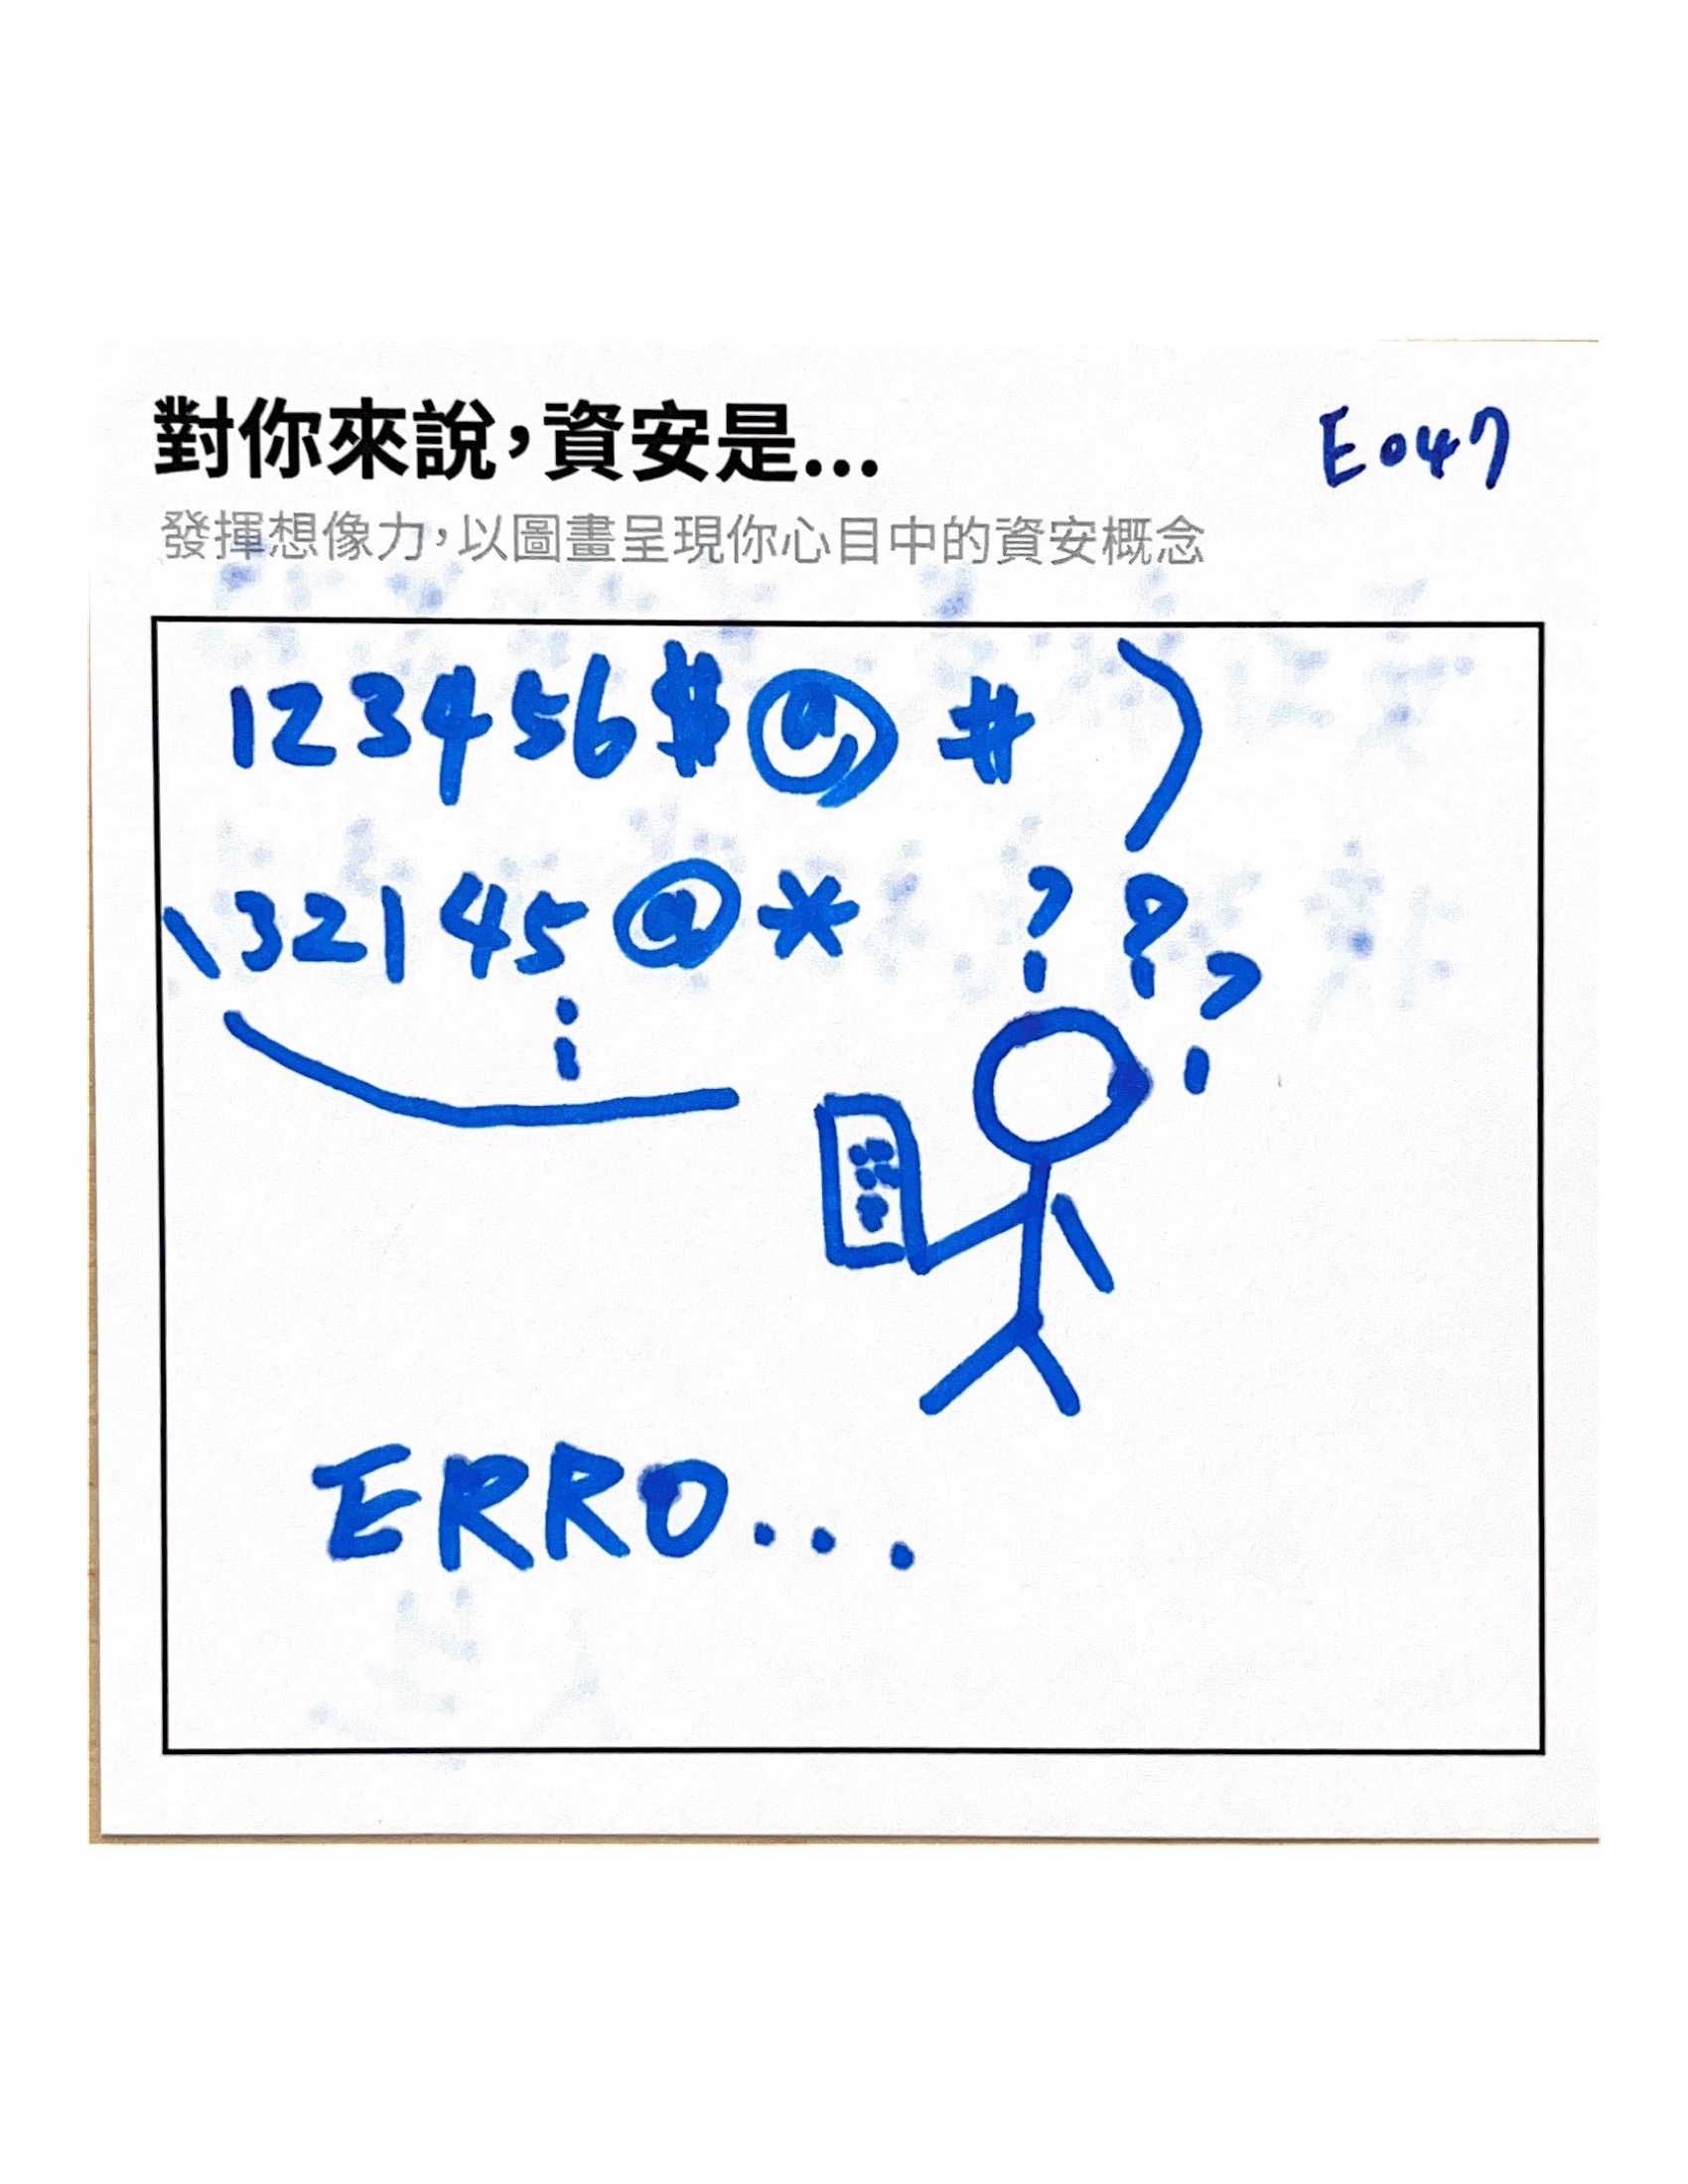 對你來說，資安是...
E047
發揮想像力，以圖畫呈現你心目中的資安概念
123456$@ #
132145@*
? ? ?
ERRO...